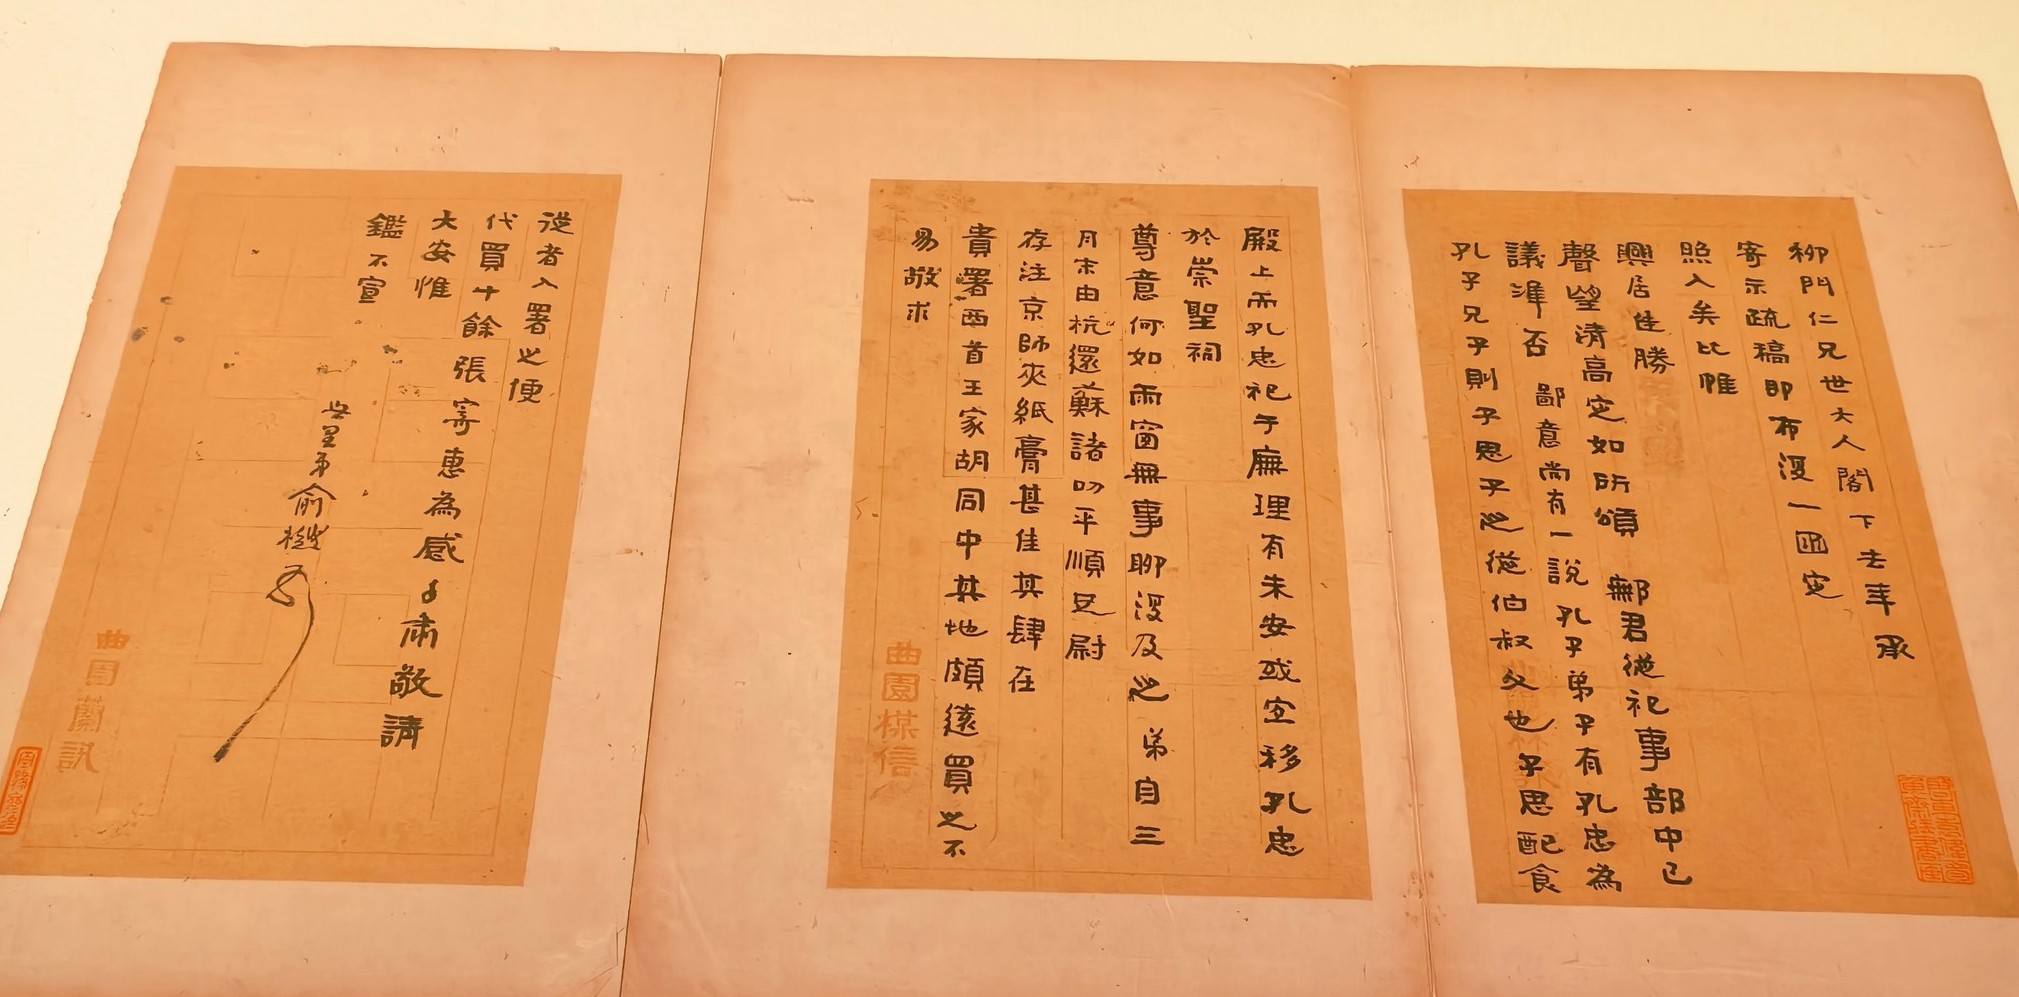 柳門仁兄世大人閣下去年承
寄示疏稿即布復一函定
照入矣比惟
興居佳勝
聲望清高定如所頌 鄦君從祀事部中已
議準否 鄙意尚有一說孔子弟子有孔忠為
孔子兄子則子思子之從伯叔父也子思配食
殿上而孔忠祀于廡理有未安或宜移孔忠
於崇聖祠
尊意何如雨窗無事聊復及之 弟自三
月末由杭還蘇諸叨平順足尉
存注京師夾紙膏甚佳其肆在
貴署西首王家胡同中其地頗遠買之不
易敬求
從者入署之便
代買十餘張寄惠為感手肅敬請
大安惟
鑑不宣
世愚弟俞樾
曲園
曲園